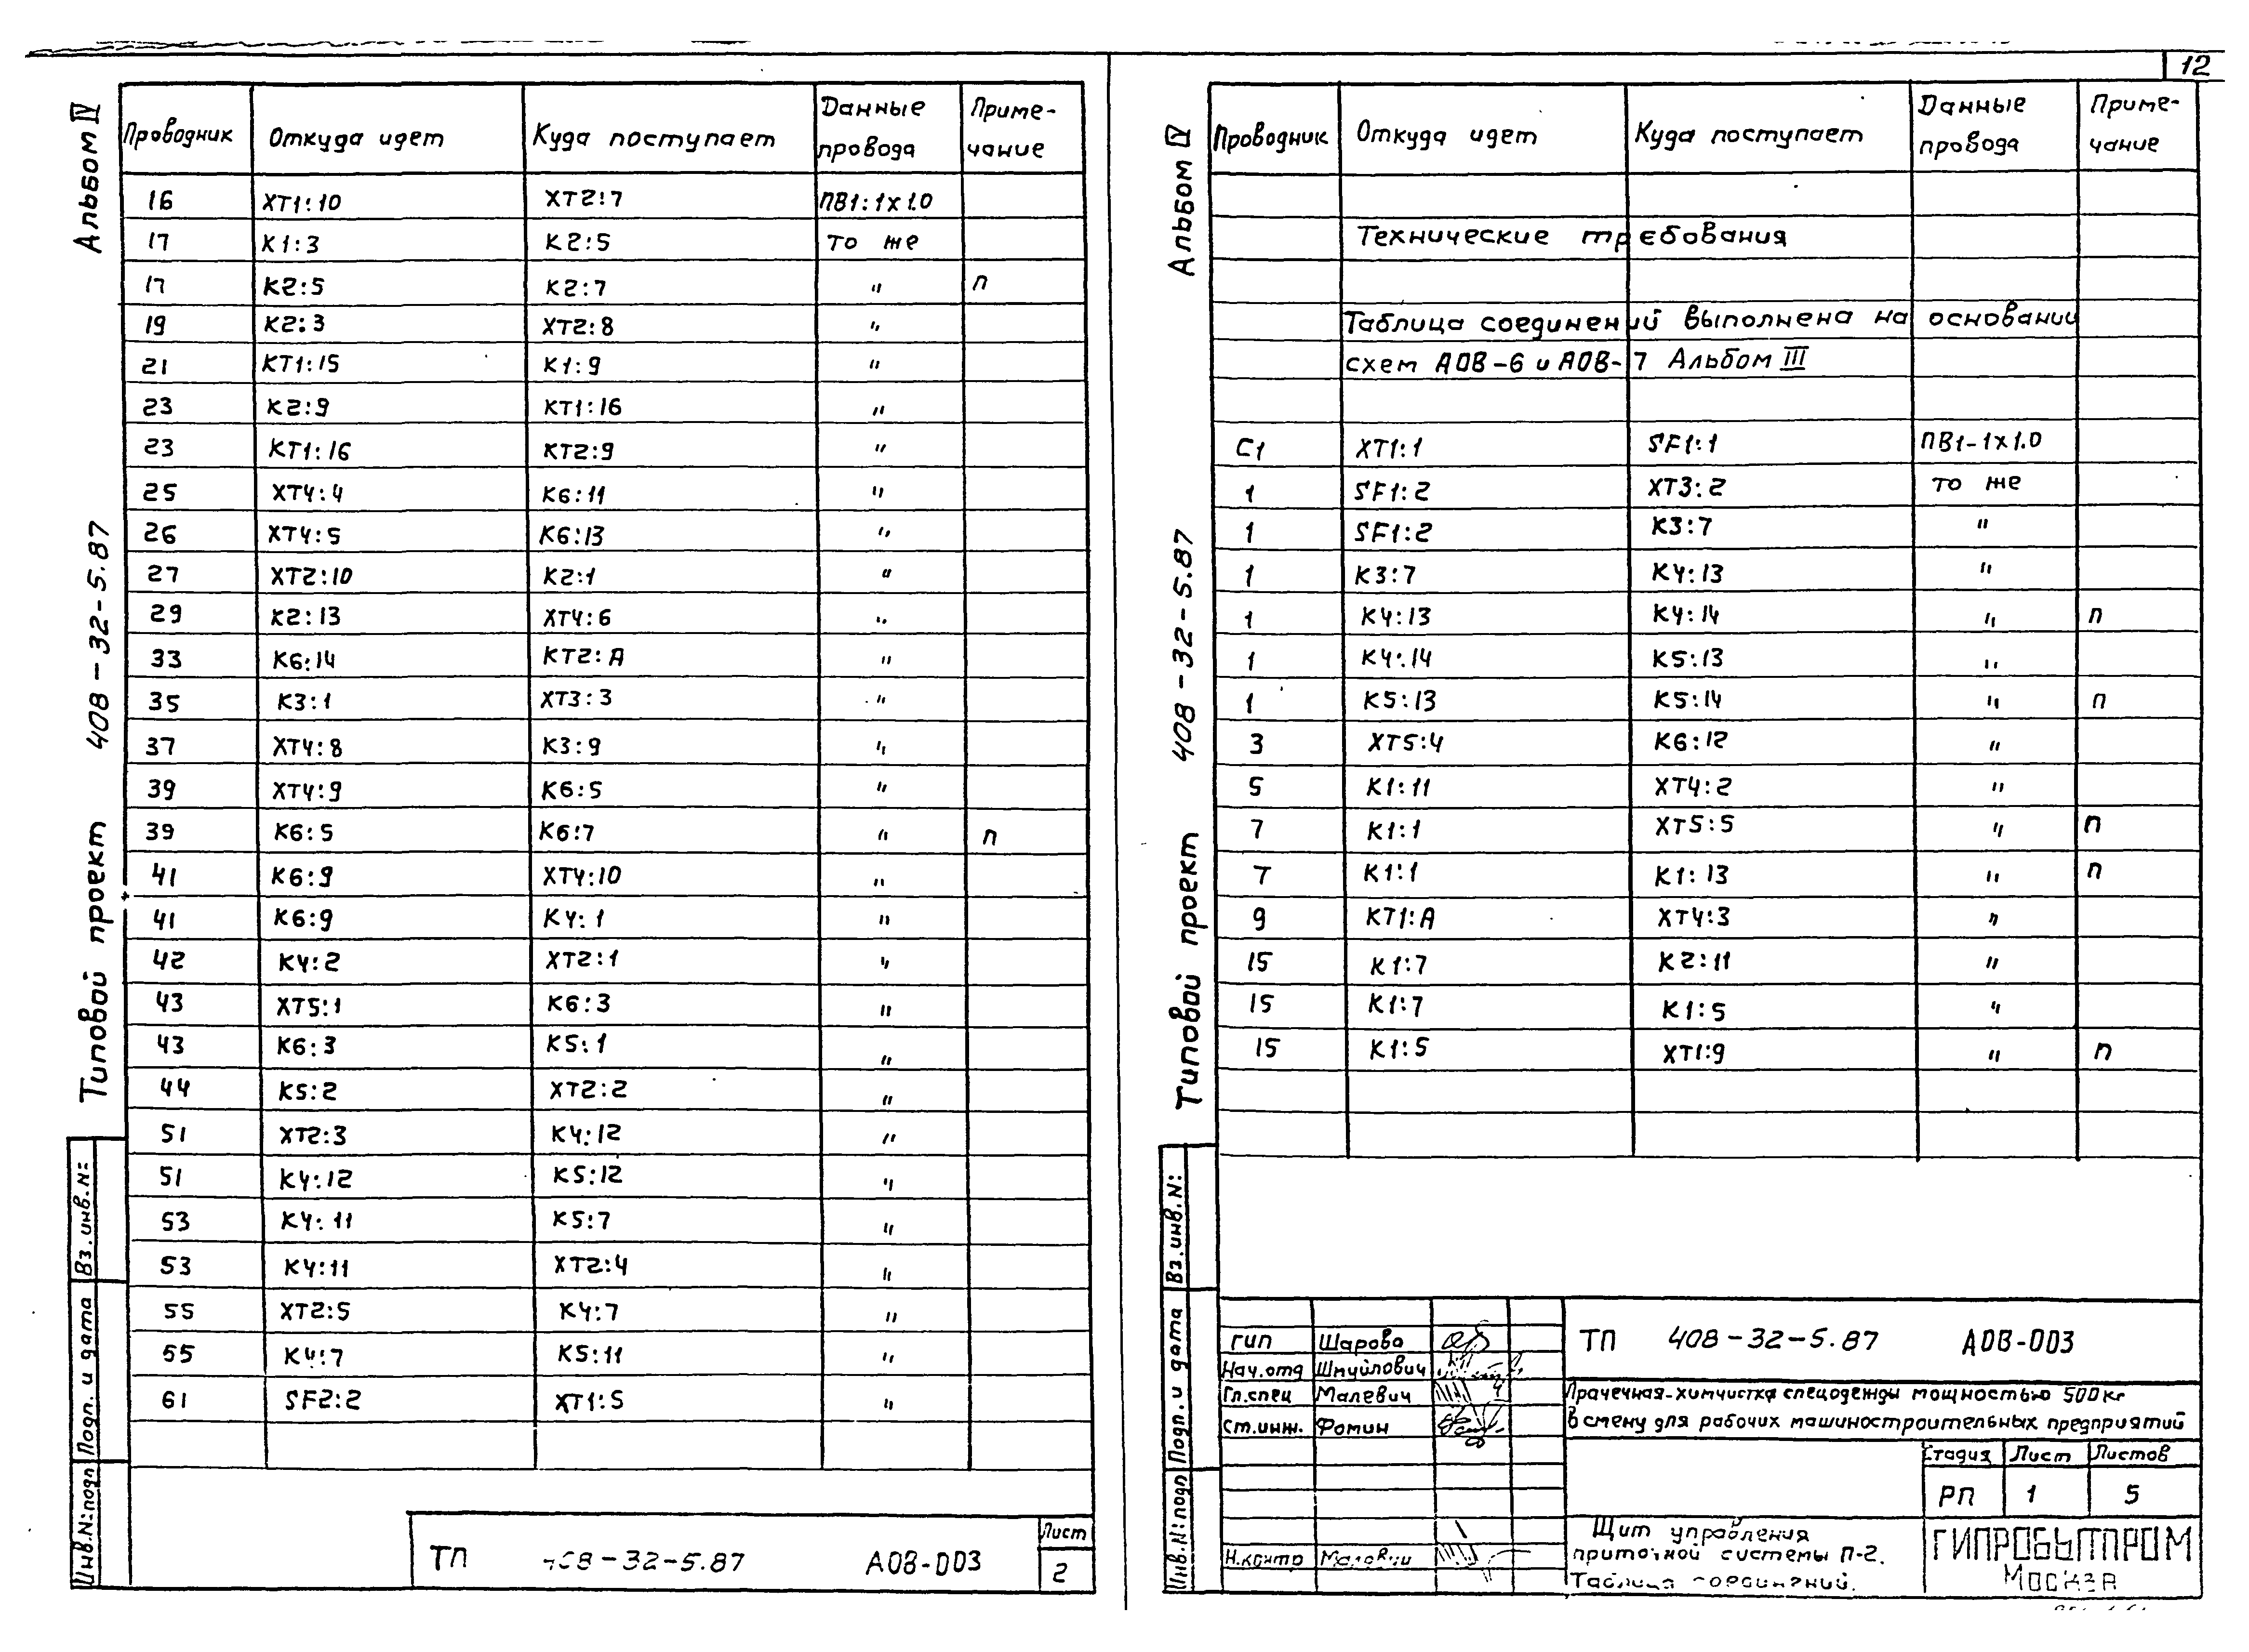 12
Альбом IV
408-32-5.87
Типовой проект
Вз.инв.N:
Подп. и дата
Инв.N:подп
Проводник Откуда идет Куда поступает Данные провода Приме-чание
16 XT1:10 XT2:7 ПВ1:1х1.0
17 K1:3 K2:5 то же
17 K2:5 K2:7 " п
19 K2:3 XT2:8 "
21 KT1:15 K1:9 "
23 K2:9 KT1:16 "
23 KT1:16 KT2:9 "
25 XT4:4 K6:11 "
26 XT4:5 K6:13 "
27 XT2:10 K2:1 "
29 K2:13 XT4:6 "
33 K6:14 KT2:A "
35 K3:1 XT3:3 "
37 XT4:8 K3:9 "
39 XT4:9 K6:5 "
39 K6:5 K6:7 " п
41 K6:9 XT4:10 "
41 K6:9 K4:1 "
42 K4:2 XT2:1 "
43 XT5:1 K6:3 "
43 K6:3 K5:1 "
44 K5:2 XT2:2 "
51 XT2:3 K4:12 "
51 K4:12 K5:12 "
53 K4:11 K5:7 "
53 K4:11 XT2:4 "
55 XT2:5 K4:7 "
55 K4:7 K5:11 "
61 SF2:2 XT1:5 "
ТП 408-32-5.87 АОВ-003
Лист
2
Альбом IV
408-32-5.87
Типовой проект
Вз.инв.N:
Подп. и дата
Инв.N:подп
Проводник Откуда идет Куда поступает Данные провода Приме-чание
Технические требования
Таблица соединений выполнена на основании
схем АОВ-6 и АОВ-7 Альбом III
С1 XT1:1 SF1:1 ПВ1-1х1.0
1 SF1:2 XT3:2 то же
1 SF1:2 K3:7 "
1 K3:7 K4:13 "
1 K4:13 K4:14 " п
1 K4:14 K5:13 "
1 K5:13 K5:14 " п
3 XT5:4 K6:12 "
5 K1:11 XT4:2 "
7 K1:1 XT5:5 " п
7 K1:1 K1:13 " п
9 KT1:A XT4:3 "
15 K1:7 K2:11 "
15 K1:7 K1:5 "
15 K1:5 XT1:9 " п
ГИП Шарова
Нач.отд Шмуйлович
Гл.спец Малевич
Ст.инж. Фомин
Н.контр Малевич
ТП 408-32-5.87 АОВ-003
Прачечная-химчистка спецодежды мощностью 500кг
в смену для рабочих машиностроительных предприятий
Стадия Лист Листов
РП 1 5
Щит управления
приточной системы П-2.
Таблица соединений.
ГИПРОБЫТПРОМ
Москва